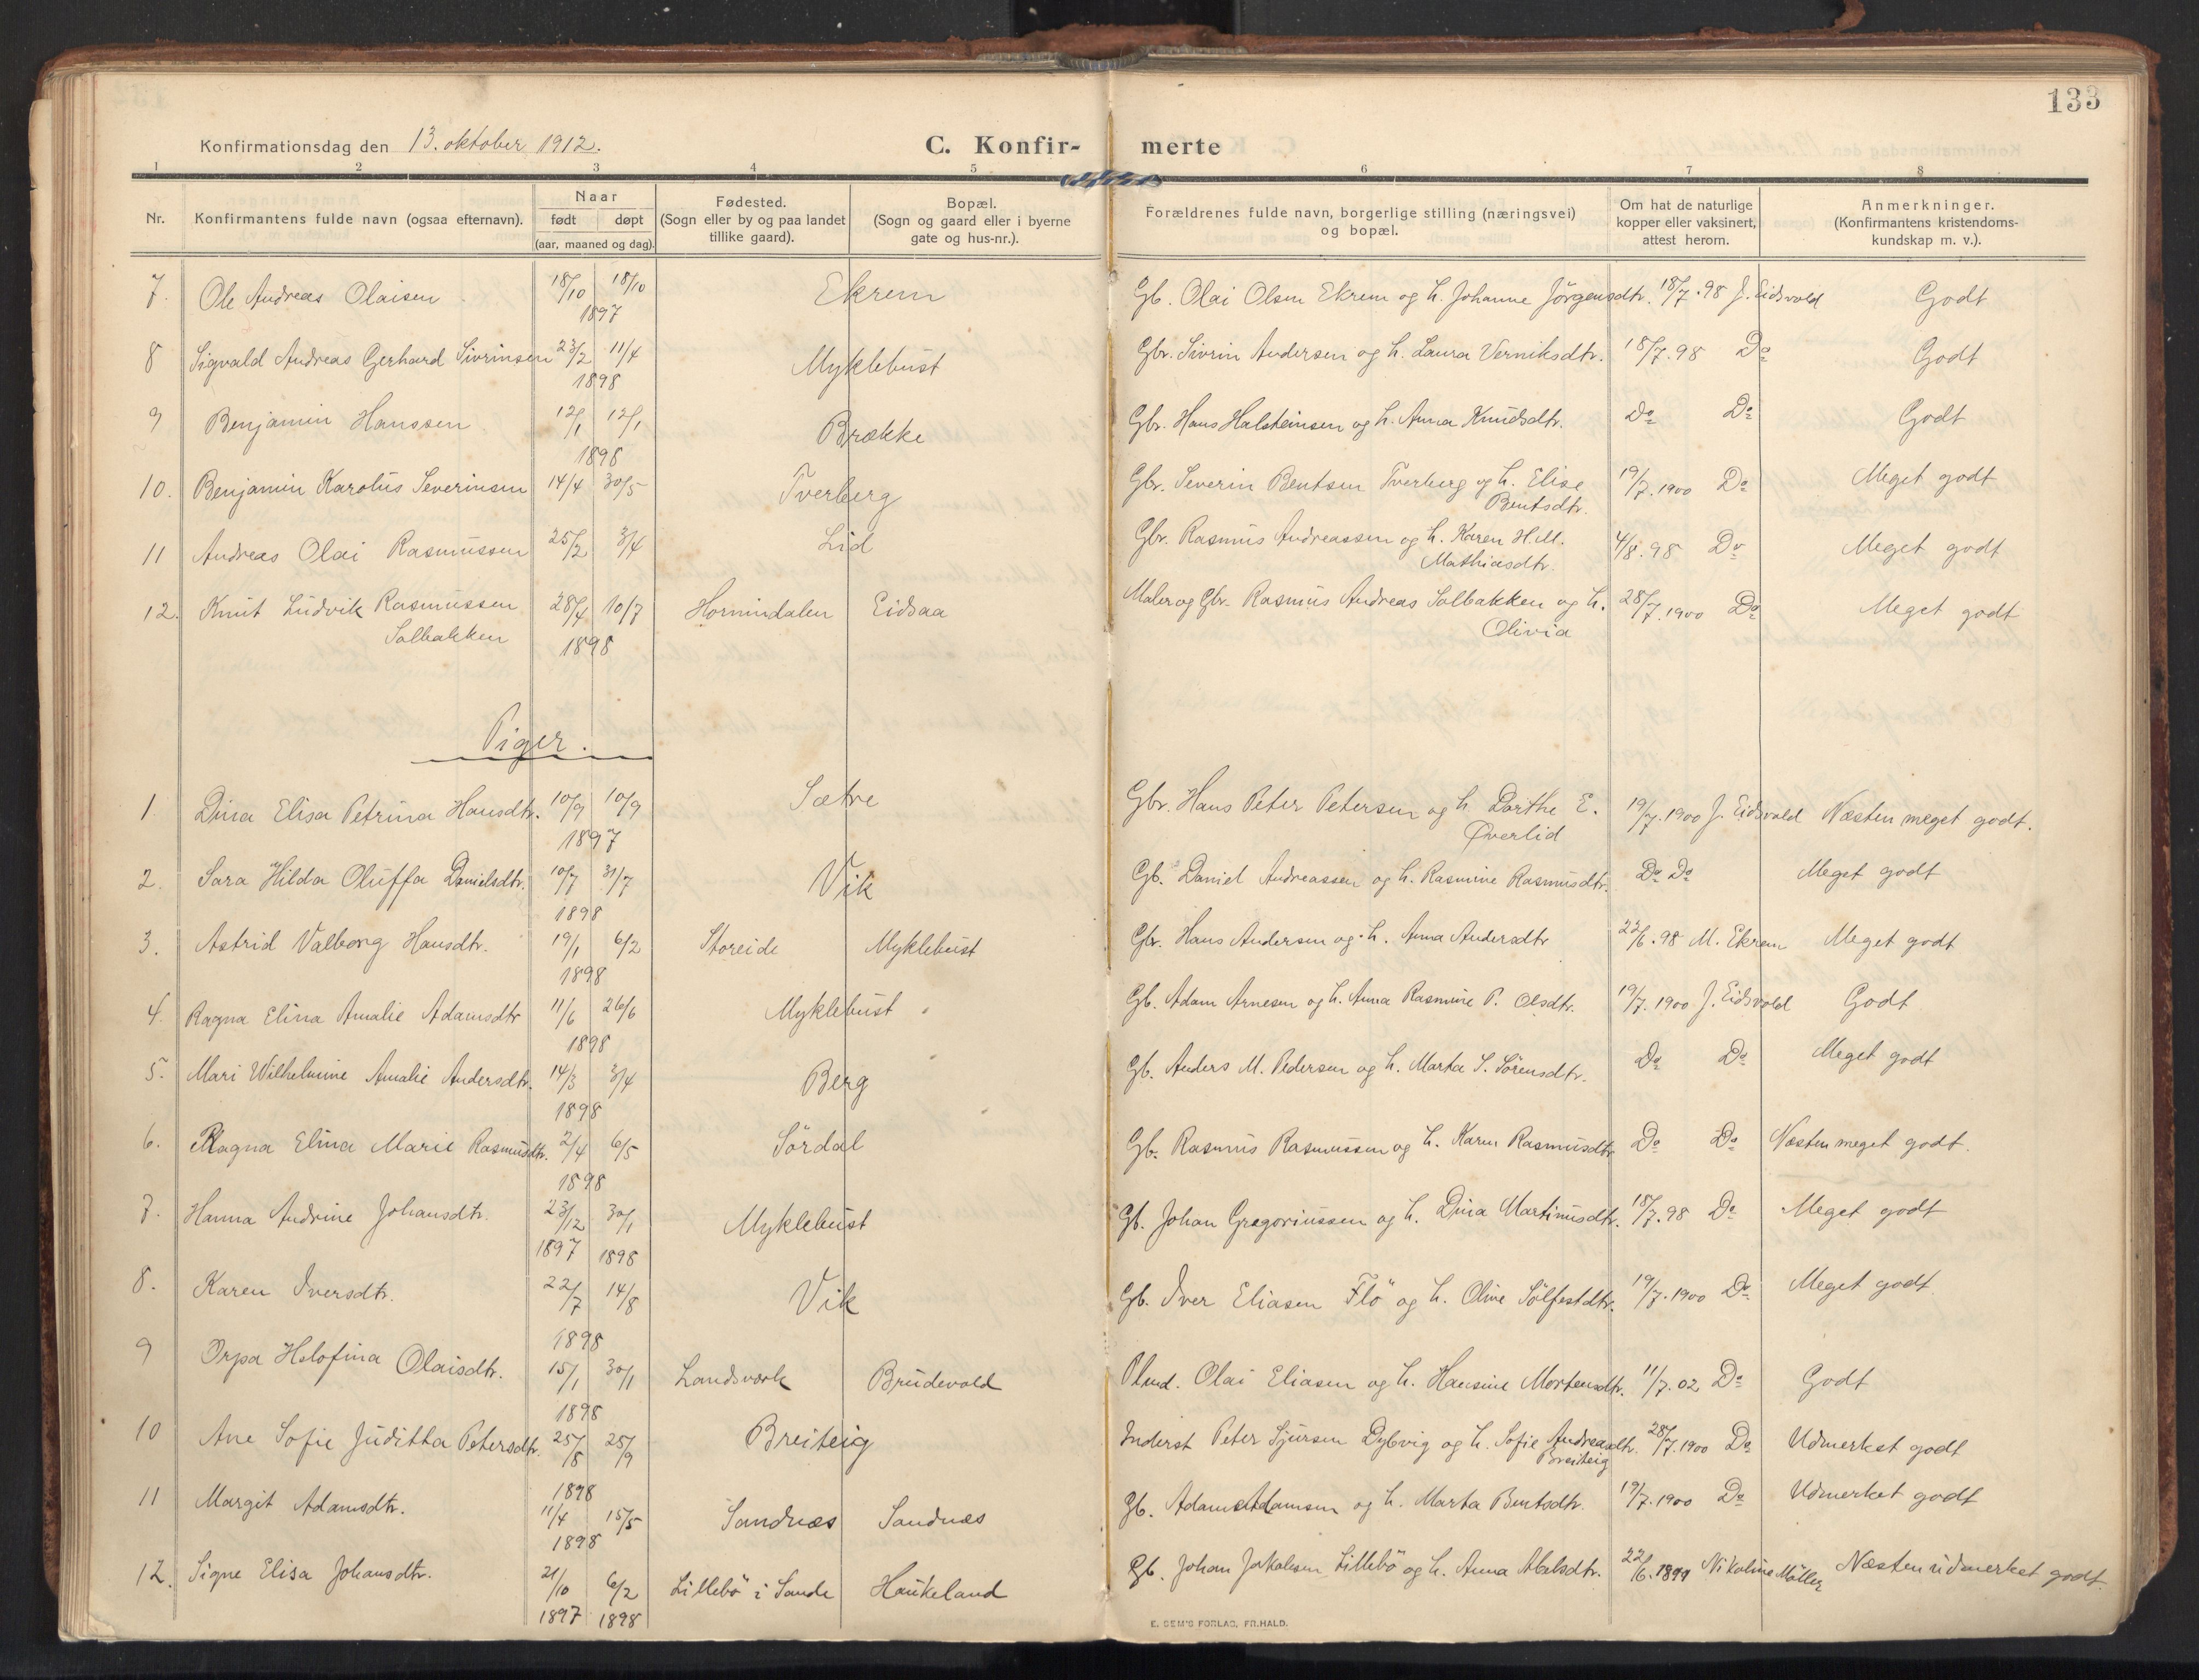 133
Konfirmationsdag den 13. oktober 1912.
C. Konfir- merte
1 2 3 4 5 6 7 8
Nr.
Konfirmantens fulde navn (ogsaa efternavn).
Naar
født døpt
(aar, maaned og dag).
Fødested.
(Sogn eller by og paa landet
tillike gaard).
Bopæl.
(Sogn og gaard eller i byerne
gate og hus-nr.).
Forældrenes fulde navn, borgerlige stilling (næringsvei)
og bopæl.
Om hat de naturlige
kopper eller vaksinert,
attest herom.
Anmerkninger.
(Konfirmantens kristendoms-
kundskap m. v.).
7. Ole Andreas Olaisen 18/10 18/10 Ekrem Gb. Olai Olsen Ekrem og h. Johanne Jörgensdtr. 18/7.98 J. Eidsvold Godt
1897
8 Sigvald Andreas Gerhard Sivrinsen 23/2 11/4 Myklebust Gbr. Sivrin Andersen og h. Laura Verniksdtr. 18/7.98 Do Godt
1898
9 Benjamin Hanssen 12/1 12/1 Brække Gbr. Hans Halsteinsen og h. Anna Knudsdtr. Do Do Godt
1898
10. Benjamin Karolus Severinsen 14/4 30/5 Tverberg Gbr. Severin Bentsen Tverberg og h. Elise 19/7.1900 Do Meget godt
Bentsdtr.
11 Andreas Olai Rasmussen 25/2 3/4 Lid Gbr. Rasmus Andreassen og h. Karen H.M. 4/8.98 Do Meget godt
Mathiasdtr.
12. Knut Ludvik Rasmussen 28/4 10/7 Hornindalen Eidsaa Maler og Gbr. Rasmus Andreas Solbakken og h. 28/7.1900 Do Meget godt
Solbakken 1898 Olivia
Piger.
1. Dina Elisa Petrina Hansdtr. 10/9 10/9 Sætre Gbr. Hans Peter Petersen og h. Dorthe E. 19/7.1900 J. Eidsvold Næsten meget godt.
1897 Øverlid
2. Sara Hilda Oluffa Danielsdtr. 10/7 31/7 Vik Gb. Daniel Andreassen og h. Rasmine Rasmusdtr. Do Do Meget godt
1898
3. Astrid Valborg Hansdtr. 19/1 6/2 Storeide Myklebust Gbr. Hans Andersen og h. Anna Andersdtr 22/6.98 M. Ekrem Meget godt
1898
4. Ragna Elina Amalie Adamsdtr 11/6 26/6 Myklebust Gb. Adam Arnesen og h. Anna Rasmine P. Olsdtr. 19/7.1900 J. Eidsvold Godt
1898
5. Mari Wilhelmine Amalie Andersdtr. 14/3 3/4 Berg Gb. Anders M. Pedersen og h. Marta S. Sörensdtr. Do Do Meget godt
1898
6. Ragna Elina Marie Rasmusdtr. 2/4 6/5 Sördal Gb. Rasmus Rasmussen og h. Karen Rasmusdtr Do Do Næsten meget godt.
1898
7. Hanna Andrine Johansdtr. 23/12 30/1 Myklebust Gb. Johan Gregoriussen og h. Dina Martinusdtr. 18/7.98 Do Meget godt
1897 1898
8. Karen Iversdtr. 22/7 14/8 Vik Gb. Iver Eliasen Flö og h. Oline Sölfestdtr. 19/7.1900 Do Meget godt
1898
9 Orpa Helofina Olaisdtr. 15/1 30/1 Landsverk Brudevold Plmd. Olai Eliasen og h. Hansine Mortensdtr. 11/7.02 Do Godt
1898
10 Ane Sofie Juditha Petersdtr. 25/8 25/9 Breiteig Inderst Peter Sjursen Dybvig og h. Sofie Andreasdtr. 28/7.1900 Do Udmerket godt
1898 Breiteig
11 Margit Adamsdtr. 11/4 15/5 Sandnæs Sandnæs Gb. Adam Adamsen og h. Marta Bentsdtr. 19/7.1900 Do Udmerket godt
1898
12. Signe Elisa Johansdtr. 21/10 6/2 Lillebö i Sande Haukeland Gb. Johan Jakobsen Lillebö og h. Anna Abelsdtr. 22/6.1899 Nikoline Möller Næsten udmerket godt.
1897 1898
E. SEM'S FORLAG, FR.HALD.